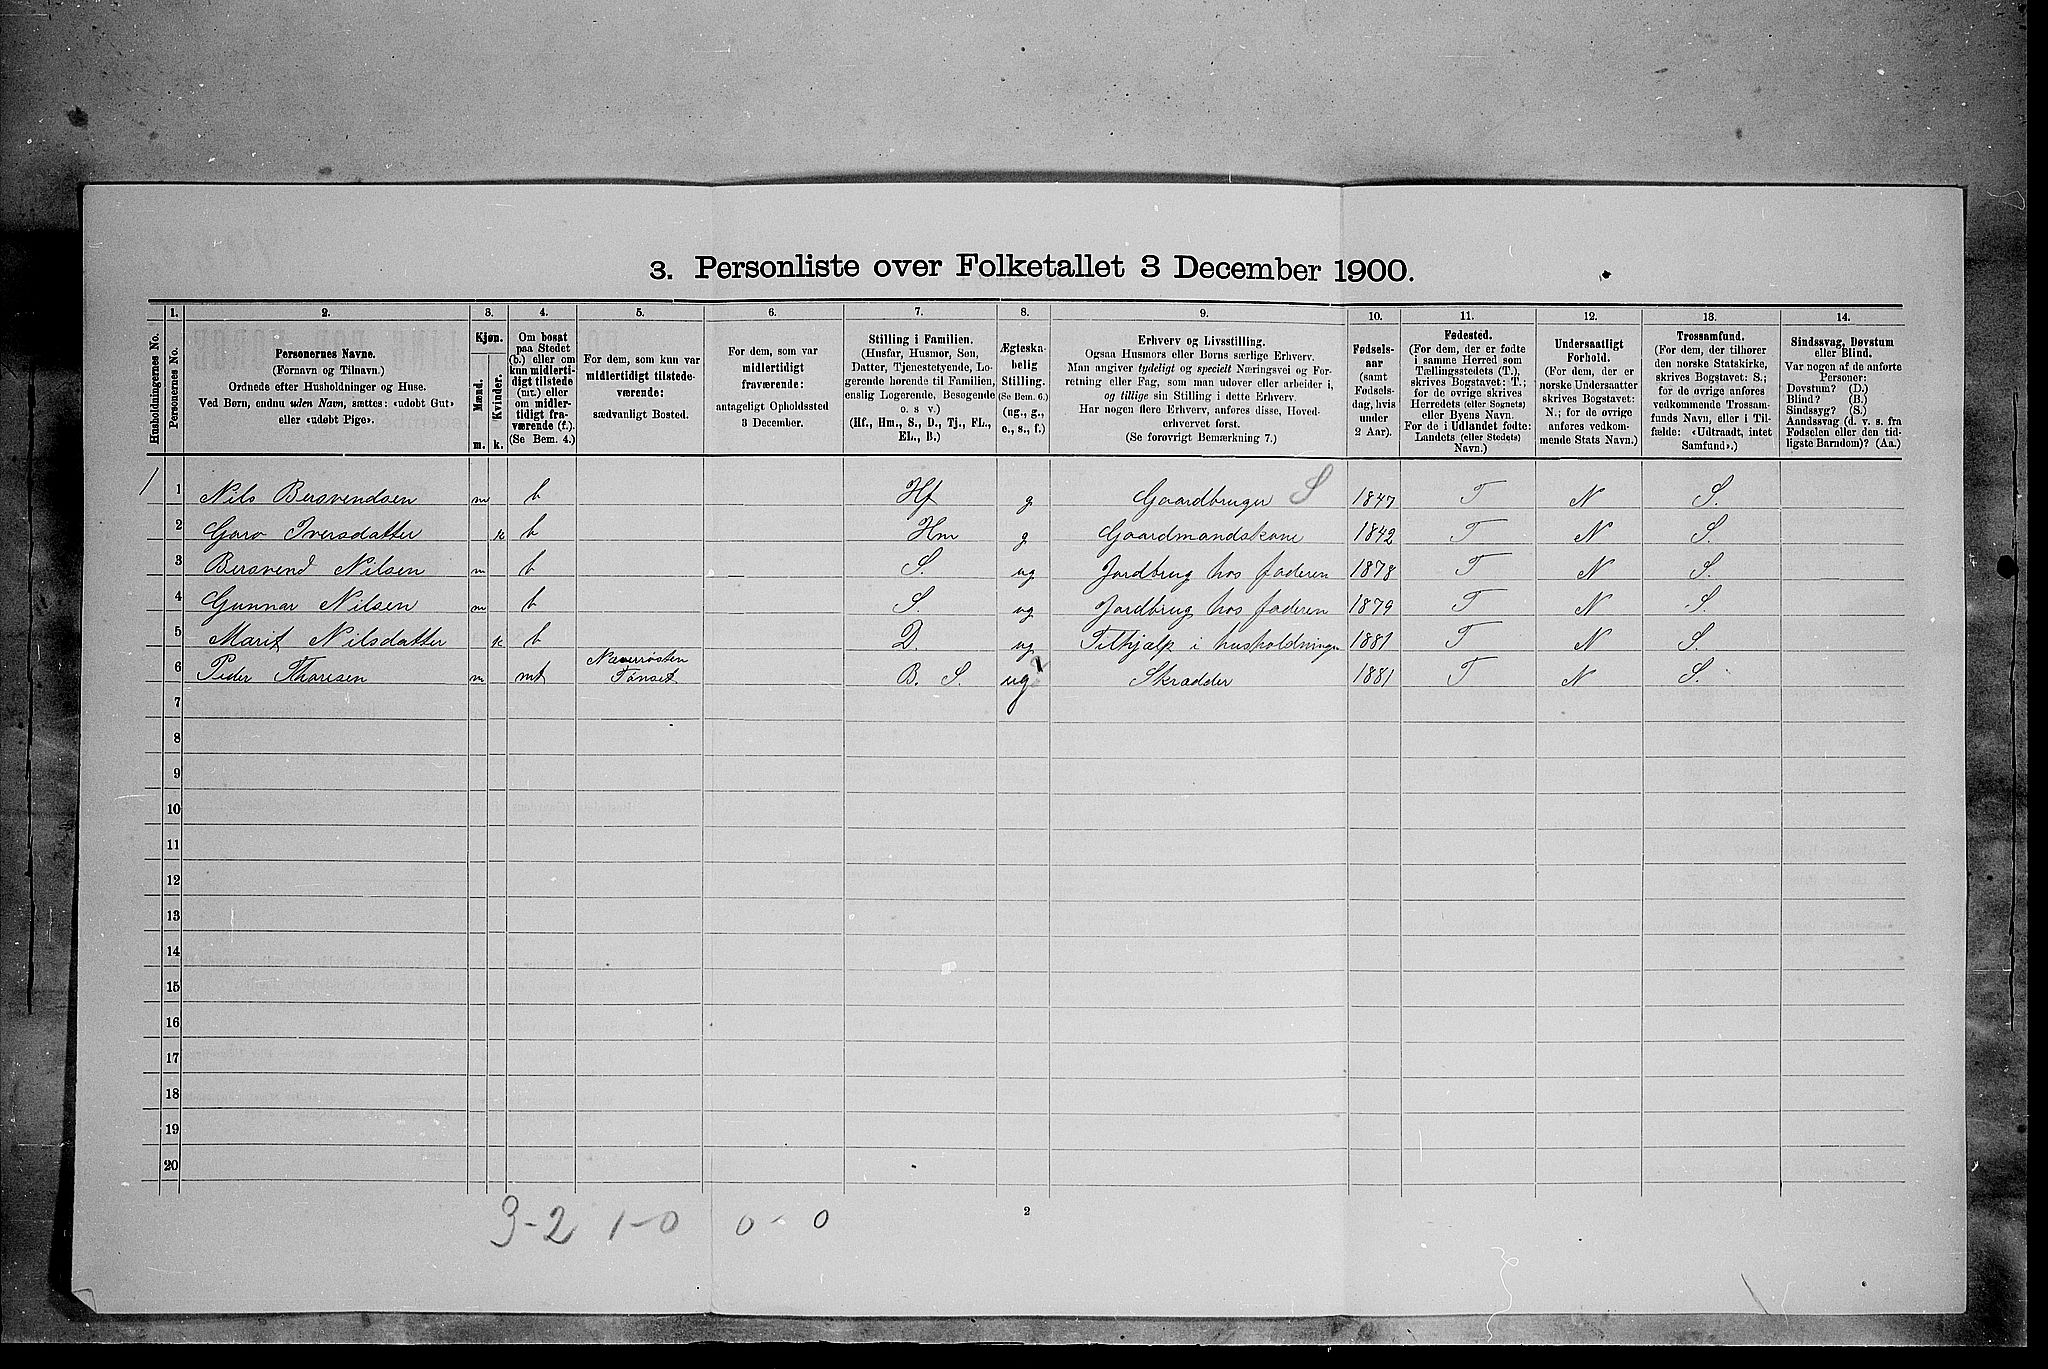 3. Personliste over Folketallet 3 December 1900.
Husholdningernes No.
1.
Personernes No.
2.
Personernes Navne.
(Fornavn og Tilnavn.)
Ordnede efter Husholdninger og Huse.
Ved Børn, endnu uden Navn, sættes: «udøbt Gut»
eller «udøbt Pige».
3.
Kjøn.
Mænd.
Kvinder.
m. k.
4.
Om bosat
paa Stedet
(b.) eller om
kun midlerti-
digt tilstede
(mt.) eller
om midler-
tidigt fra-
værende (f.).
(Se Bem. 4.)
5.
For dem, som kun var
midlertidigt tilstede-
værende:
sædvanligt Bosted.
6.
For dem, som var
midlertidigt
fraværende:
antageligt Opholdssted
3 December.
7.
Stilling i Familien.
(Husfar, Husmor, Søn,
Datter, Tjenestetyende, Lo-
gerende hørende til Familien,
enslig Logerende, Besøgende
o. s v.)
(Hf., Hm., S., D., Tj., FL.,
EL., B.)
8.
Ægteska-
belig
Stilling.
(Se Bem. 6.)
(ug., g.,
e., s., f.)
9.
Erhverv og Livsstilling.
Ogsaa Husmors eller Børns særlige Erhverv.
Man angiver tydeligt og specielt Næringsvei og For-
retning eller Fag, som man udøver eller arbeider i,
og tillige sin Stilling i dette Erhverv.
Har nogen flere Erhverv, anføres disse, Hoved-
erhvervet først.
(Se forøvrigt Bemærkning 7.)
10.
Fødsels-
aar
(samt
Fødsels-
dag, hvis
under
2 Aar).
11.
Fødested.
(For dem, der er fødte
i samme Herred som
Tællingsstedets (T.),
skrives Bogstavet: T.;
for de øvrige skrives
Herredets (eller Sognets)
eller Byens Navn.
For de i Udlandet fødte:
Landets (eller Stedets)
Navn.)
12.
Undersaatligt
Forhold.
(For dem, der er
norske Undersaatter
skrives Bogstavet:
N.; for de øvrige
anføres vedkom-
mende Stats Navn.)
13.
Trossamfund.
(For dem, der tilhører
den norske Statskirke,
skrives Bogstavet: S.;
for de øvrige anføres
vedkommende Trossam-
funds Navn, eller i Til-
fælde: «Udtraadt, intet
Samfund».)
14.
Sindssvag, Døvstum
eller Blind.
Var nogen af de anførte
Personer:
Døvstum? (D.)
Blind? (B.)
Sindssyg? (S.)
Aandssvag (d. v. s. fra
Fødselen eller den tid-
ligste Barndom)? (Aa.)
1 1 Nils Bersvendsen m b Hf g Gaardbruger S 1847 T N S.
2 Goro Iversdatter k b Hm g Gaardmandskone 1842 T N S.
3 Bersvend Nilsen m b S. ug Jordbrug hos faderen 1878 T N S.
4 Gunnar Nilsen m b S. ug Jordbrug hos faderen 1879 T N S.
5 Marit Nilsdatter k b D. ug Tilhjælp i husholdningen 1881 T N S.
6 Peder Tharesen m mt Næverrösten Tönset B. S. ug Skrædder 1881 T N S.
7
8
9
10
11
12
13
14
15
16
17
18
19
20
3-2 1-0 0-0
2